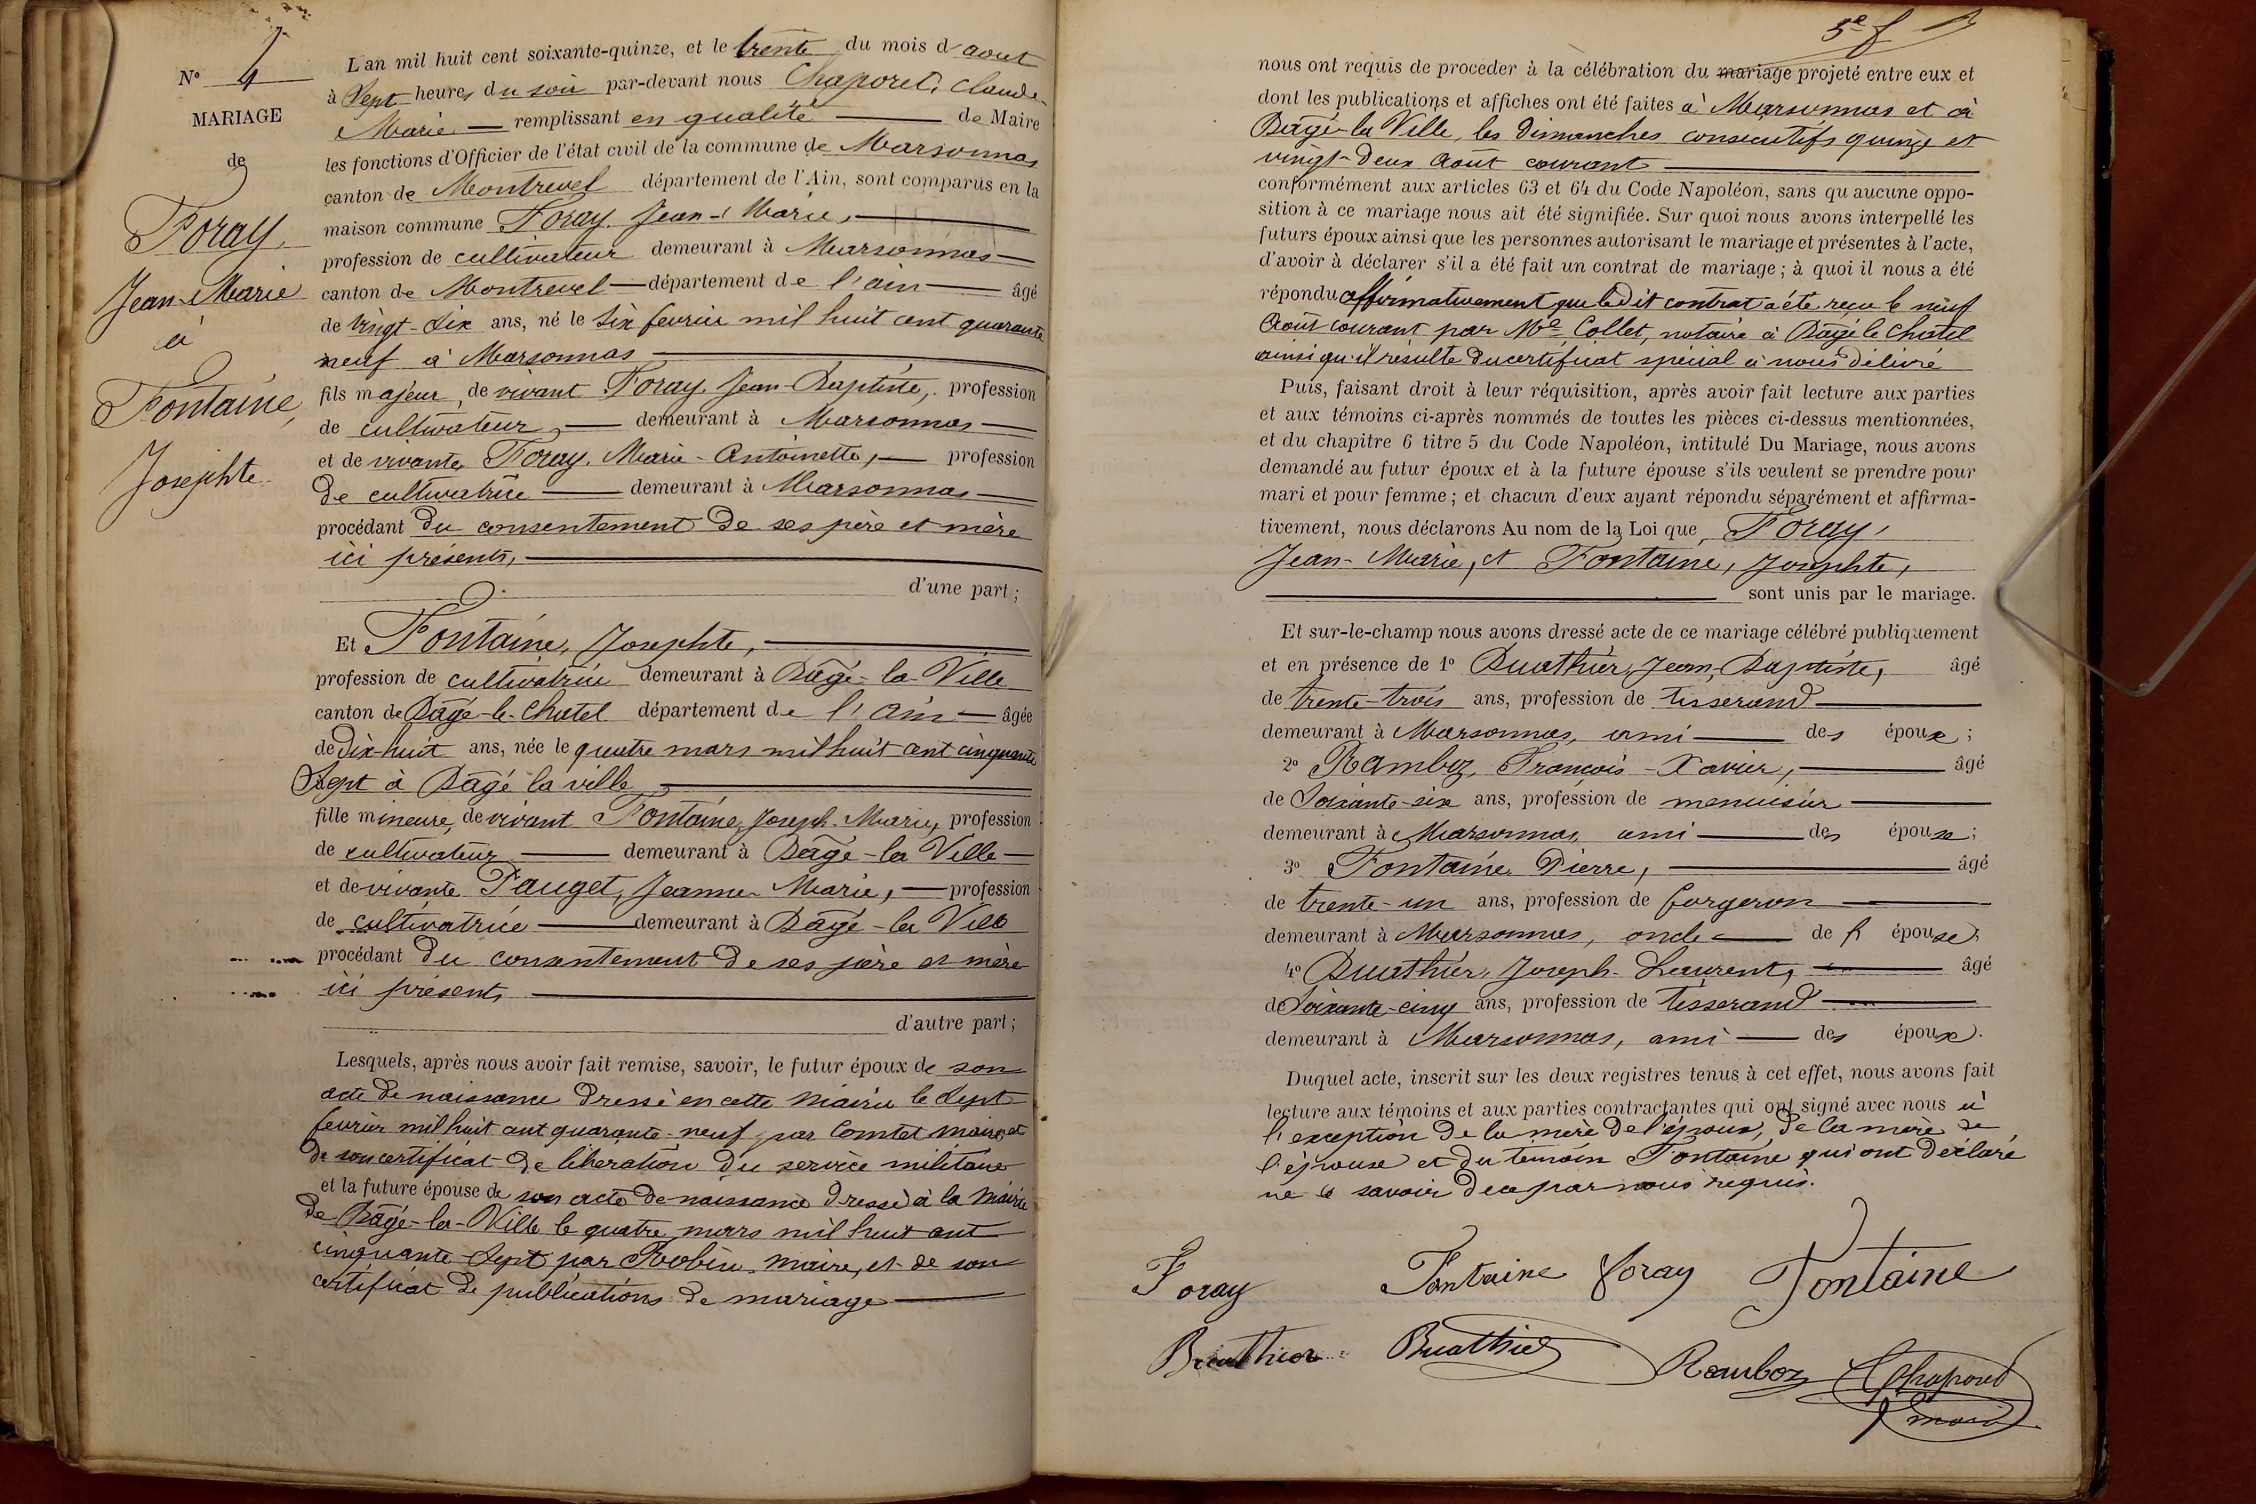 N° 4
MARIAGE
de
Foray,
Jean-Marie
à
Fontaine,
Josephte
L'an mil huit cent soixante-quinze, et le trente du mois d'aout
à Sept heures du soir par-devant nous Chaporet, Claude-
Marie — remplissant en qualité — de Maire
les fonctions d'Officier de l'état civil de la commune de Marsonnas
canton de Montrevel département de l'Ain, sont comparus en la
maison commune Foray, Jean-Marie,
profession de cultivateur demeurant à Marsonnas
canton de Montrevel département de l'ain âgé
de vingt-six ans, né le six fevrier mil huit cent quarante
neuf à Marsonnas
fils majeur, de vivant Foray, Jean-Baptiste, profession
de cultivateur, demeurant à Marsonnas
et de vivante Foray, Marie-Antoinette, profession
de cultivatrice demeurant à Marsonnas
procédant du consentement de ses père et mère
ici présents,
d'une part;
Et Fontaine, Josephte,
profession de cultivatrice demeurant à Bagé-la-Ville
canton de Bagé-le-Chatel département de l'Ain âgée
de dix-huit ans, née le quatre mars mil huit cent cinquante
Sept à Bagé la ville,
fille mineure, de vivant Fontaine, Joseph-Marie, profession
de cultivateur demeurant à Bagé-la Ville
et de vivante Pauget, Jeanne-Marie, profession
de cultivatrice demeurant à Bagé-la Ville
procédant du consentement de ses père et mère
ici présents
d'autre part;
Lesquels, après nous avoir fait remise, savoir, le futur époux de son
acte de naissance dressé en cette mairie le Sept
fevrier mil huit cent quarante-neuf, par Comtet maire, et
de son certificat de libération du service militaire
et la future épouse de son acte de naissance dressé à la mairie
de Bagé-la-Ville le quatre mars mil huit cent
cinquante-Sept par Robin maire, et de son
certificat de publications de mariage
5e f
nous ont requis de proceder à la célébration du mariage projeté entre eux et
dont les publications et affiches ont été faites à Marsonnas et à
Bagé-la Ville, les dimanches consecutifs quinze et
vingt-deux Août courant
conformément aux articles 63 et 64 du Code Napoléon, sans qu'aucune oppo-
sition à ce mariage nous ait été signifiée. Sur quoi nous avons interpellé les
futurs époux ainsi que les personnes autorisant le mariage et présentes à l'acte,
d'avoir à déclarer s'il a été fait un contrat de mariage; à quoi il nous a été
répondu affirmativement que ledit contrat a été reçu le neuf
Août courant par Me Collet, notaire à Bagé le Chatel
ainsi qu'il résulte du certificat spécial à nous délivré
Puis, faisant droit à leur réquisition, après avoir fait lecture aux parties
et aux témoins ci-après nommés de toutes les pièces ci-dessus mentionnées,
et du chapitre 6 titre 5 du Code Napoléon, intitulé Du Mariage, nous avons
demandé au futur époux et à la future épouse s'ils veulent se prendre pour
mari et pour femme; et chacun d'eux ayant répondu séparément et affirma-
tivement, nous déclarons Au nom de la Loi que, Foray,
Jean-Marie, et Fontaine, Josephte,
sont unis par le mariage.
Et sur-le-champ nous avons dressé acte de ce mariage célébré publiquement
et en présence de 1° Buathier, Jean-Baptiste, âgé
de trente-trois ans, profession de tisserand
demeurant à Marsonnas, ami des époux;
2° Ramboz, François-Xavier, âgé
de Soixante-six ans, profession de menuisier
demeurant à Marsonnas, ami des époux;
3° Fontaine Pierre, âgé
de trente-un ans, profession de forgeron
demeurant à Marsonnas, oncle de l' épouse;
4° Buathier, Joseph-Laurent, âgé
de Soixante-cinq ans, profession de tisserand
demeurant à Marsonnas, ami des époux.
Duquel acte, inscrit sur les deux registres tenus à cet effet, nous avons fait
lecture aux témoins et aux parties contractantes qui ont signé avec nous à
l'exception de la mère de l'époux, de la mère de
l'épouse et du témoin Fontaine qui ont déclaré
ne le savoir de ce par nous requis.
Foray Fontaine Foray Fontaine
Buathier Buathier Ramboz Chaporet
maire